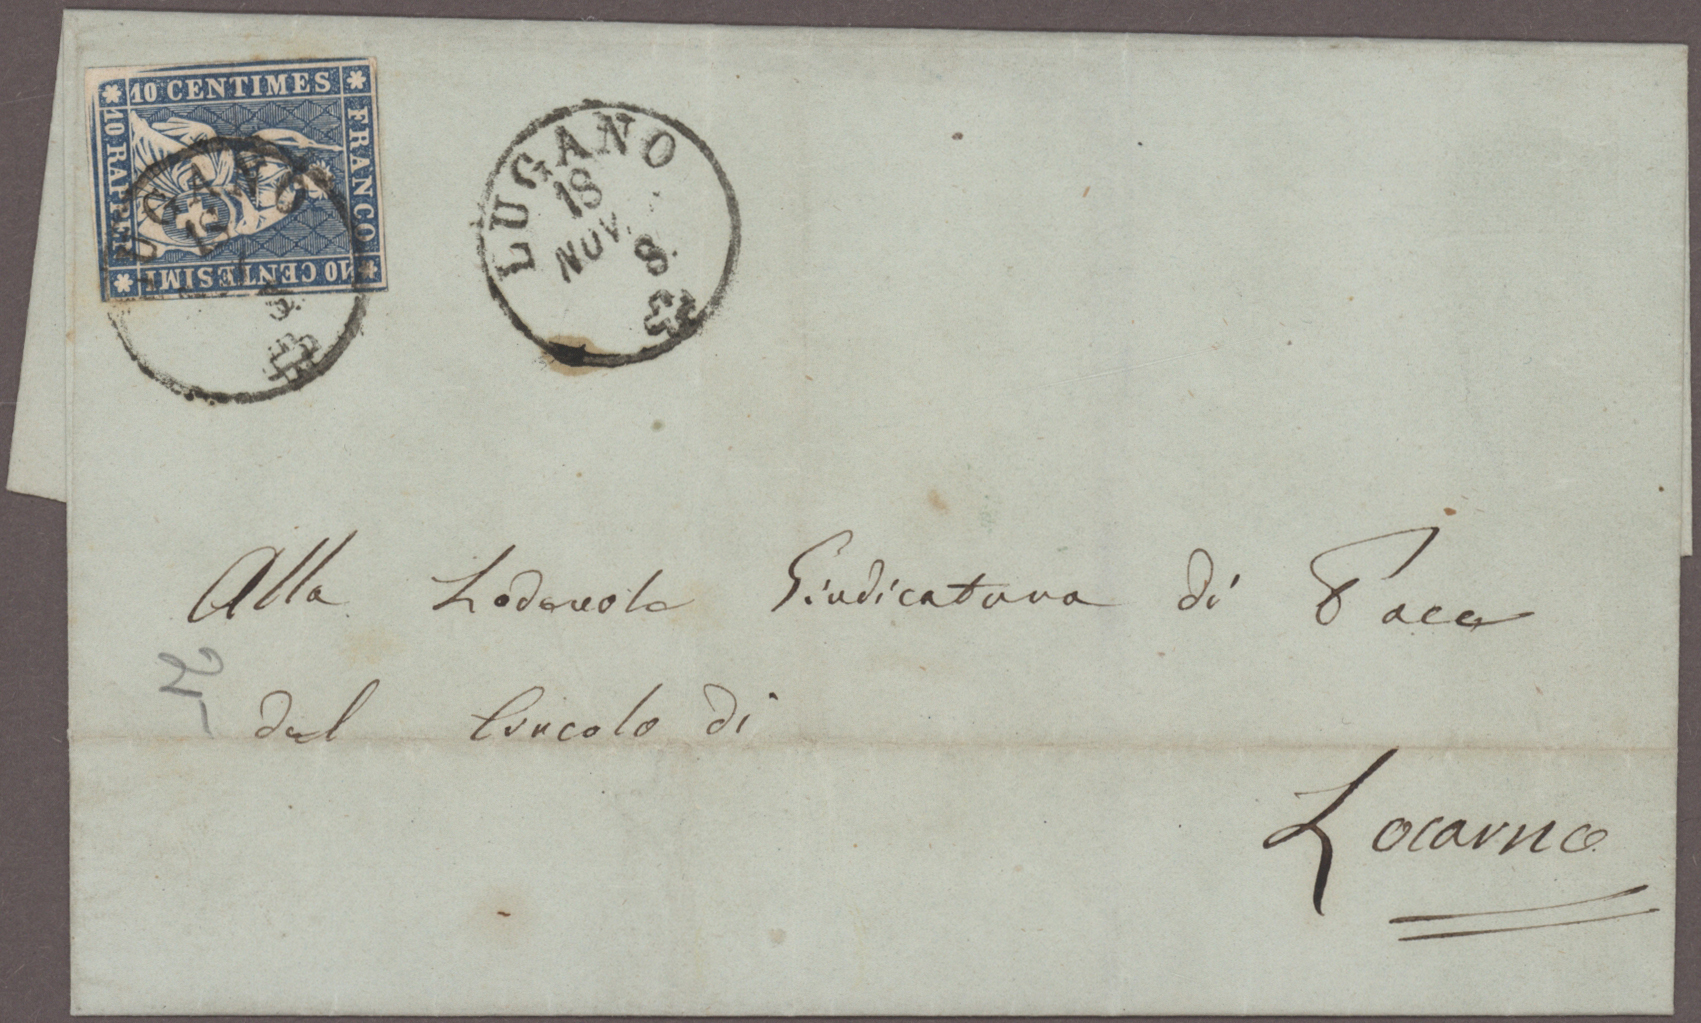 10 CENTIMES
FRANCO
10 CENTESIMI
10 RAPPEN
UGANO
18
8.
LUGANO
18
NOV.
8.
Alla Lodevole Giudicatura di Pace
del Circolo di
Locarno